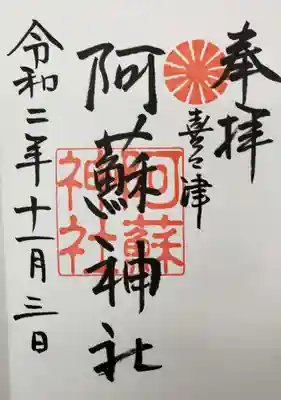 奉拝
喜々津
阿蘇神社
阿蘇神社
令和二年十一月三日